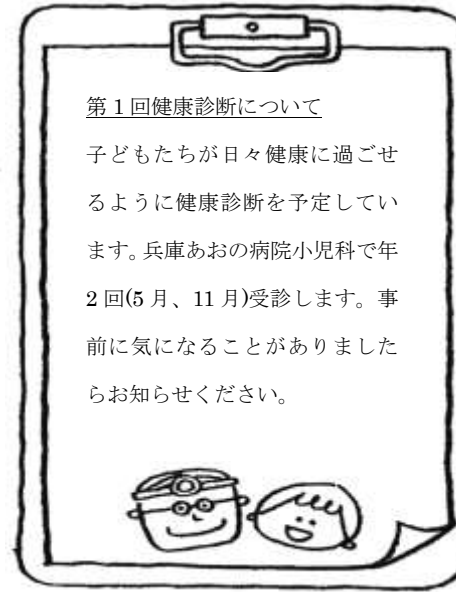 第1回健康診断について
子どもたちが日々健康に過ごせ
るように健康診断を予定してい
ます。兵庫あおの病院小児科で年
2回(5月、11月)受診します。事
前に気になることがありました
らお知らせください。